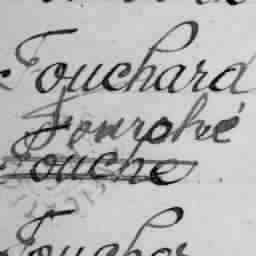 Fouchard
Fourché
Fouche
Foucher